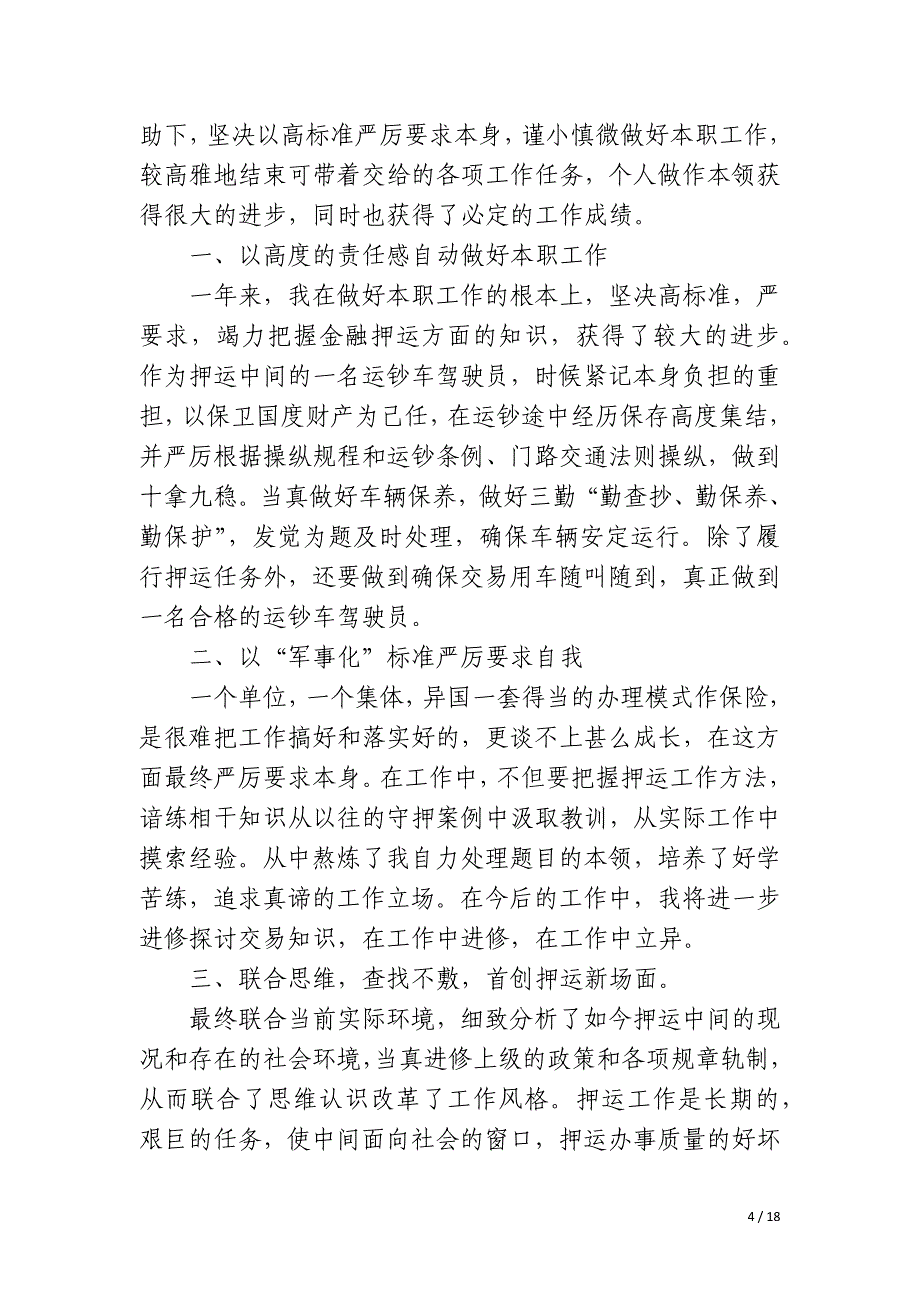 助下，坚决以高标准严厉要求本身，谨小慎微做好本职工作，
较高雅地结束可带着交给的各项工作任务，个人做作本领获
得很大的进步，同时也获得了必定的工作成绩。
一、以高度的责任感自动做好本职工作
一年来，我在做好本职工作的根本上，坚决高标准，严
要求，竭力把握金融押运方面的知识，获得了较大的进步。
作为押运中间的一名运钞车驾驶员，时候紧记本身负担的重
担，以保卫国度财产为己任，在运钞途中经历保存高度集结，
并严厉根据操纵规程和运钞条例、门路交通法则操纵，做到
十拿九稳。当真做好车辆保养，做好三勤“勤查抄、勤保养、
勤保护”，发觉为题及时处理，确保车辆安定运行。除了履
行押运任务外，还要做到确保交易用车随叫随到，真正做到
一名合格的运钞车驾驶员。
二、以“军事化”标准严厉要求自我
一个单位，一个集体，异国一套得当的办理模式作保险，
是很难把工作搞好和落实好的，更谈不上甚么成长，在这方
面最终严厉要求本身。在工作中，不但要把握押运工作方法，
谙练相干知识从以往的守押案例中汲取教训，从实际工作中
摸索经验。从中熬炼了我自力处理题目的本领，培养了好学
苦练，追求真谛的工作立场。在今后的工作中，我将进一步
进修探讨交易知识，在工作中进修，在工作中立异。
三、联合思维，查找不敷，首创押运新场面。
最终联合当前实际环境，细致分析了如今押运中间的现
况和存在的社会环境，当真进修上级的政策和各项规章轨制，
从而联合了思维认识改革了工作风格。押运工作是长期的，
艰巨的任务，使中间面向社会的窗口，押运办事质量的好坏
4 / 18